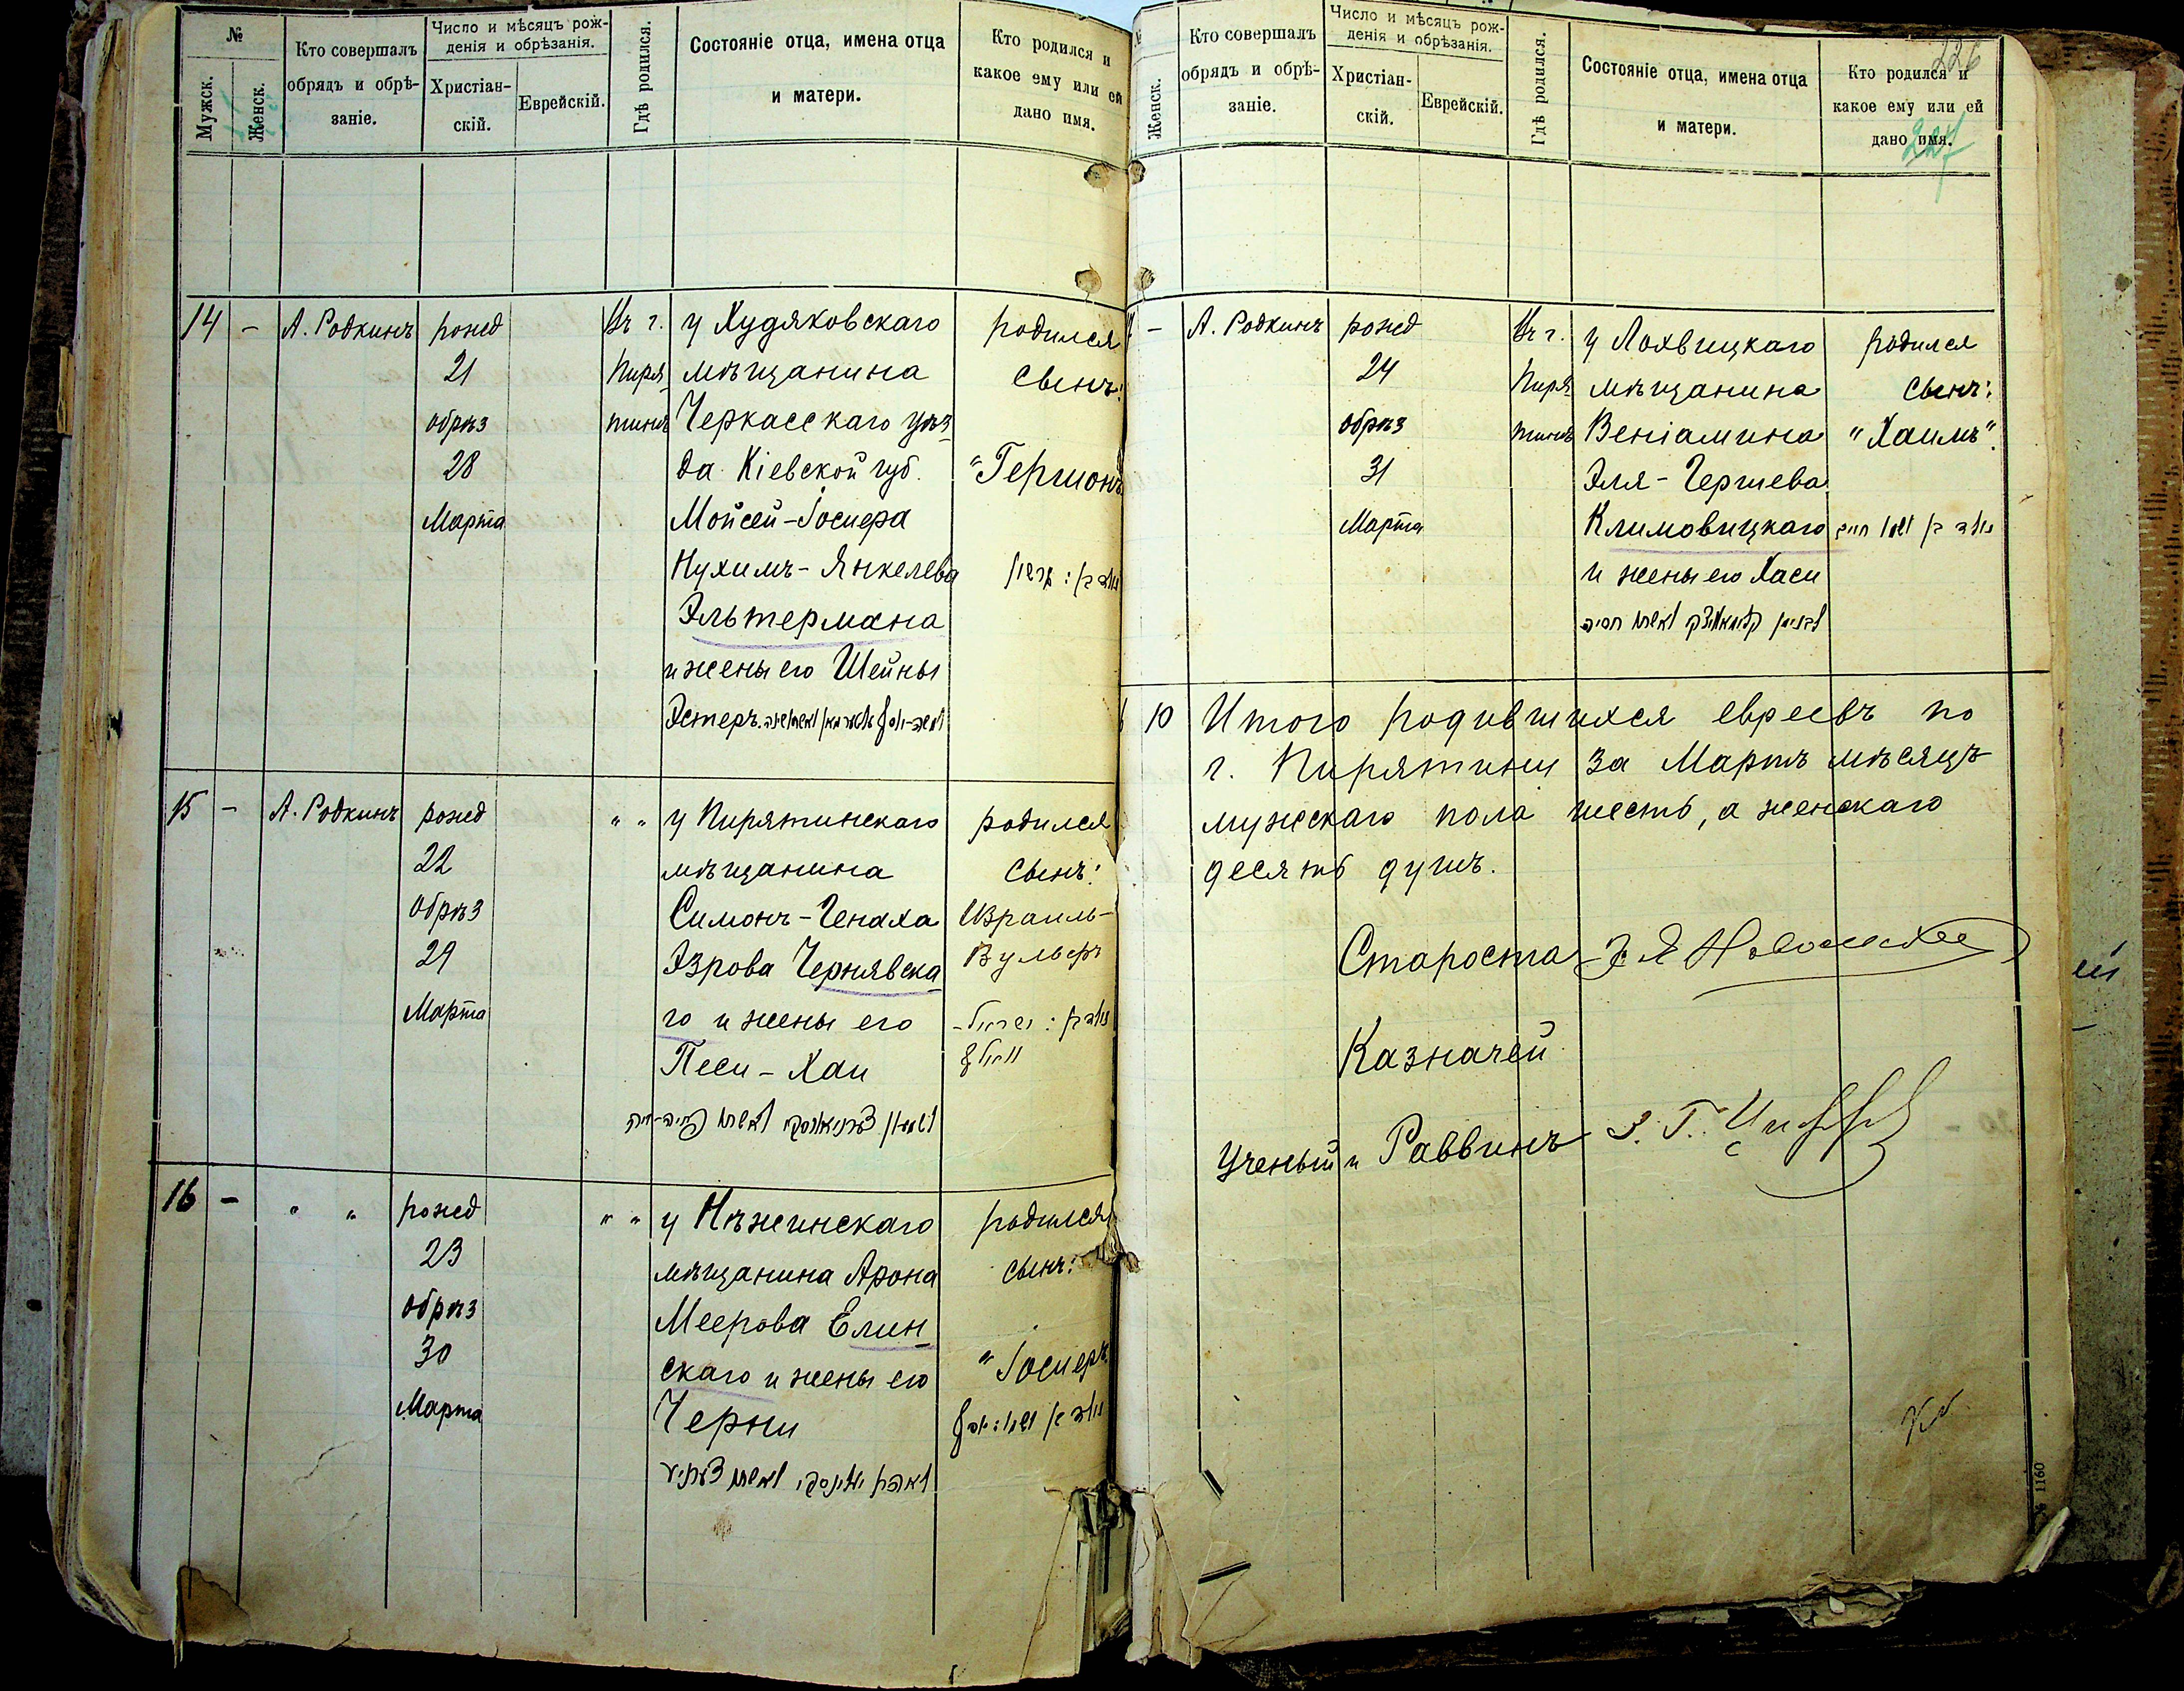 №
Мужск.
Женск.
Кто совершалъ
обрядъ и обрѣ-
заніе.
Число и мѣсяцъ рож-
денія и обрѣзанія.
Христіан-
скій.
Еврейскій.
Гдѣ родился.
Состояніе отца, имена отца
и матери.
Кто родился и
какое ему или ей
дано имя.
14 - А. Родкинъ
рожд
21
обрѣз
28
Марта
Въ г.
Пиря
тинѣ
у Худяковскаго
мѣщанина
Черкасскаго уѣз
да Кіевской губ.
Мойсей-Іосифа
Нухимъ-Янкелева
Эльтермана
и жены его Шейны
Эстеръ.
родился
сынъ:
"Гершонъ
15 - А. Родкинъ
рожд
22
обрѣз
29
Марта
" "
у Пирятинскаго
мѣщанина
Симонъ-Генаха
Азрова Чернявска
го и жены его
Песи-Хаи
родился
сынъ:
Израиль-
Вульфъ
16 - " "
рожд
23
обрѣз
30
Марта
" "
у Нѣжинскаго
мѣщанина Арона
Меерова Елин
скаго и жены его
Черни
родился
сынъ:
"Іосифъ
Женск.
Кто совершалъ
обрядъ и обрѣ-
заніе.
Число и мѣсяцъ рож-
денія и обрѣзанія.
Христіан-
скій.
Еврейскій.
Гдѣ родился.
Состояніе отца, имена отца
и матери.
Кто родился и
какое ему или ей
дано имя.
226
227
- А. Родкинъ
рожд
24
обрѣз
31
Марта
Въ г.
Пиря
тинѣ
у Лохвицкаго
мѣщанина
Веніамина
Эля-Гершева
Климовицкаго
и жены его Хаси
родился
сынъ:
"Хаимъ".
10 Итого родившихся евреевъ по
г. Пирятину за Мартъ мѣсяцъ
мужскаго пола шесть, а женскаго
десять душъ.
Староста
Казначей
Ученый Раввинъ
№ 1160